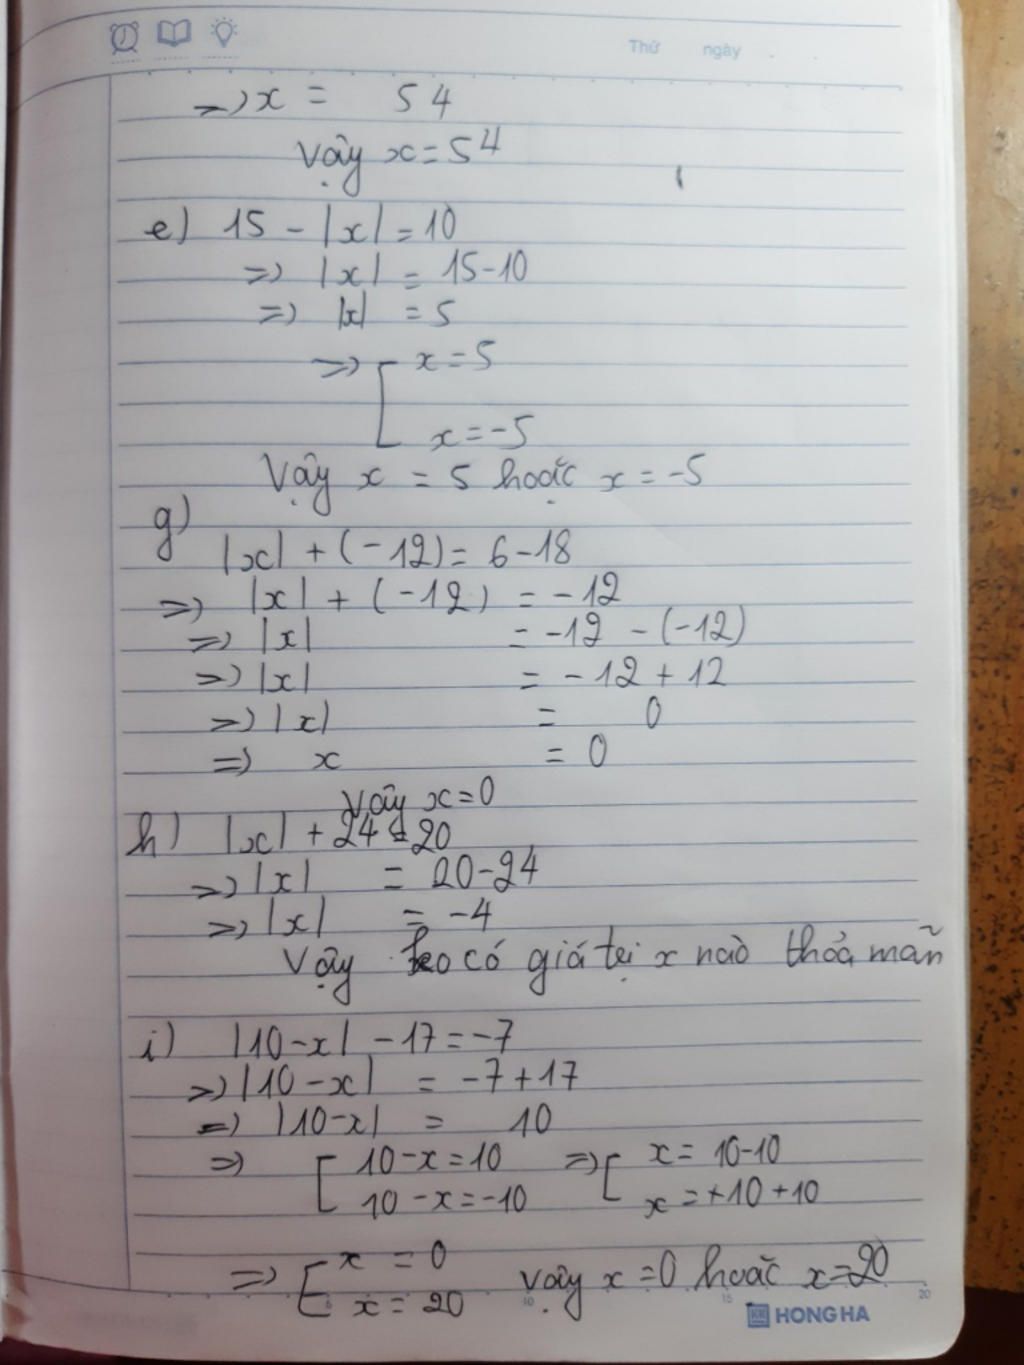 Thứ ngày
=> x = 54
Vậy x = 54
e) 15 - |x| = 10
=> |x| = 15-10
=> |x| = 5
=> [ x = 5
x = -5
Vậy x = 5 hoặc x = -5
g)
|x| + (-12) = 6-18
=> |x| + (-12) = -12
=> |x| = -12 - (-12)
=> |x| = -12 + 12
=> |x| = 0
=> x = 0
Vậy x = 0
h) |x| + 24 = 20
=> |x| = 20-24
=> |x| = -4
Vậy ko có giá tị x nào thỏa mãn
i) |10-x| - 17 = -7
=> |10-x| = -7+17
=> |10-x| = 10
=> [ 10-x = 10 => [ x = 10-10
10-x = -10 x = +10+10
=> [ x = 0 Vậy x = 0 hoặc x = 20
x = 20
5 10 15 20
HONG HA